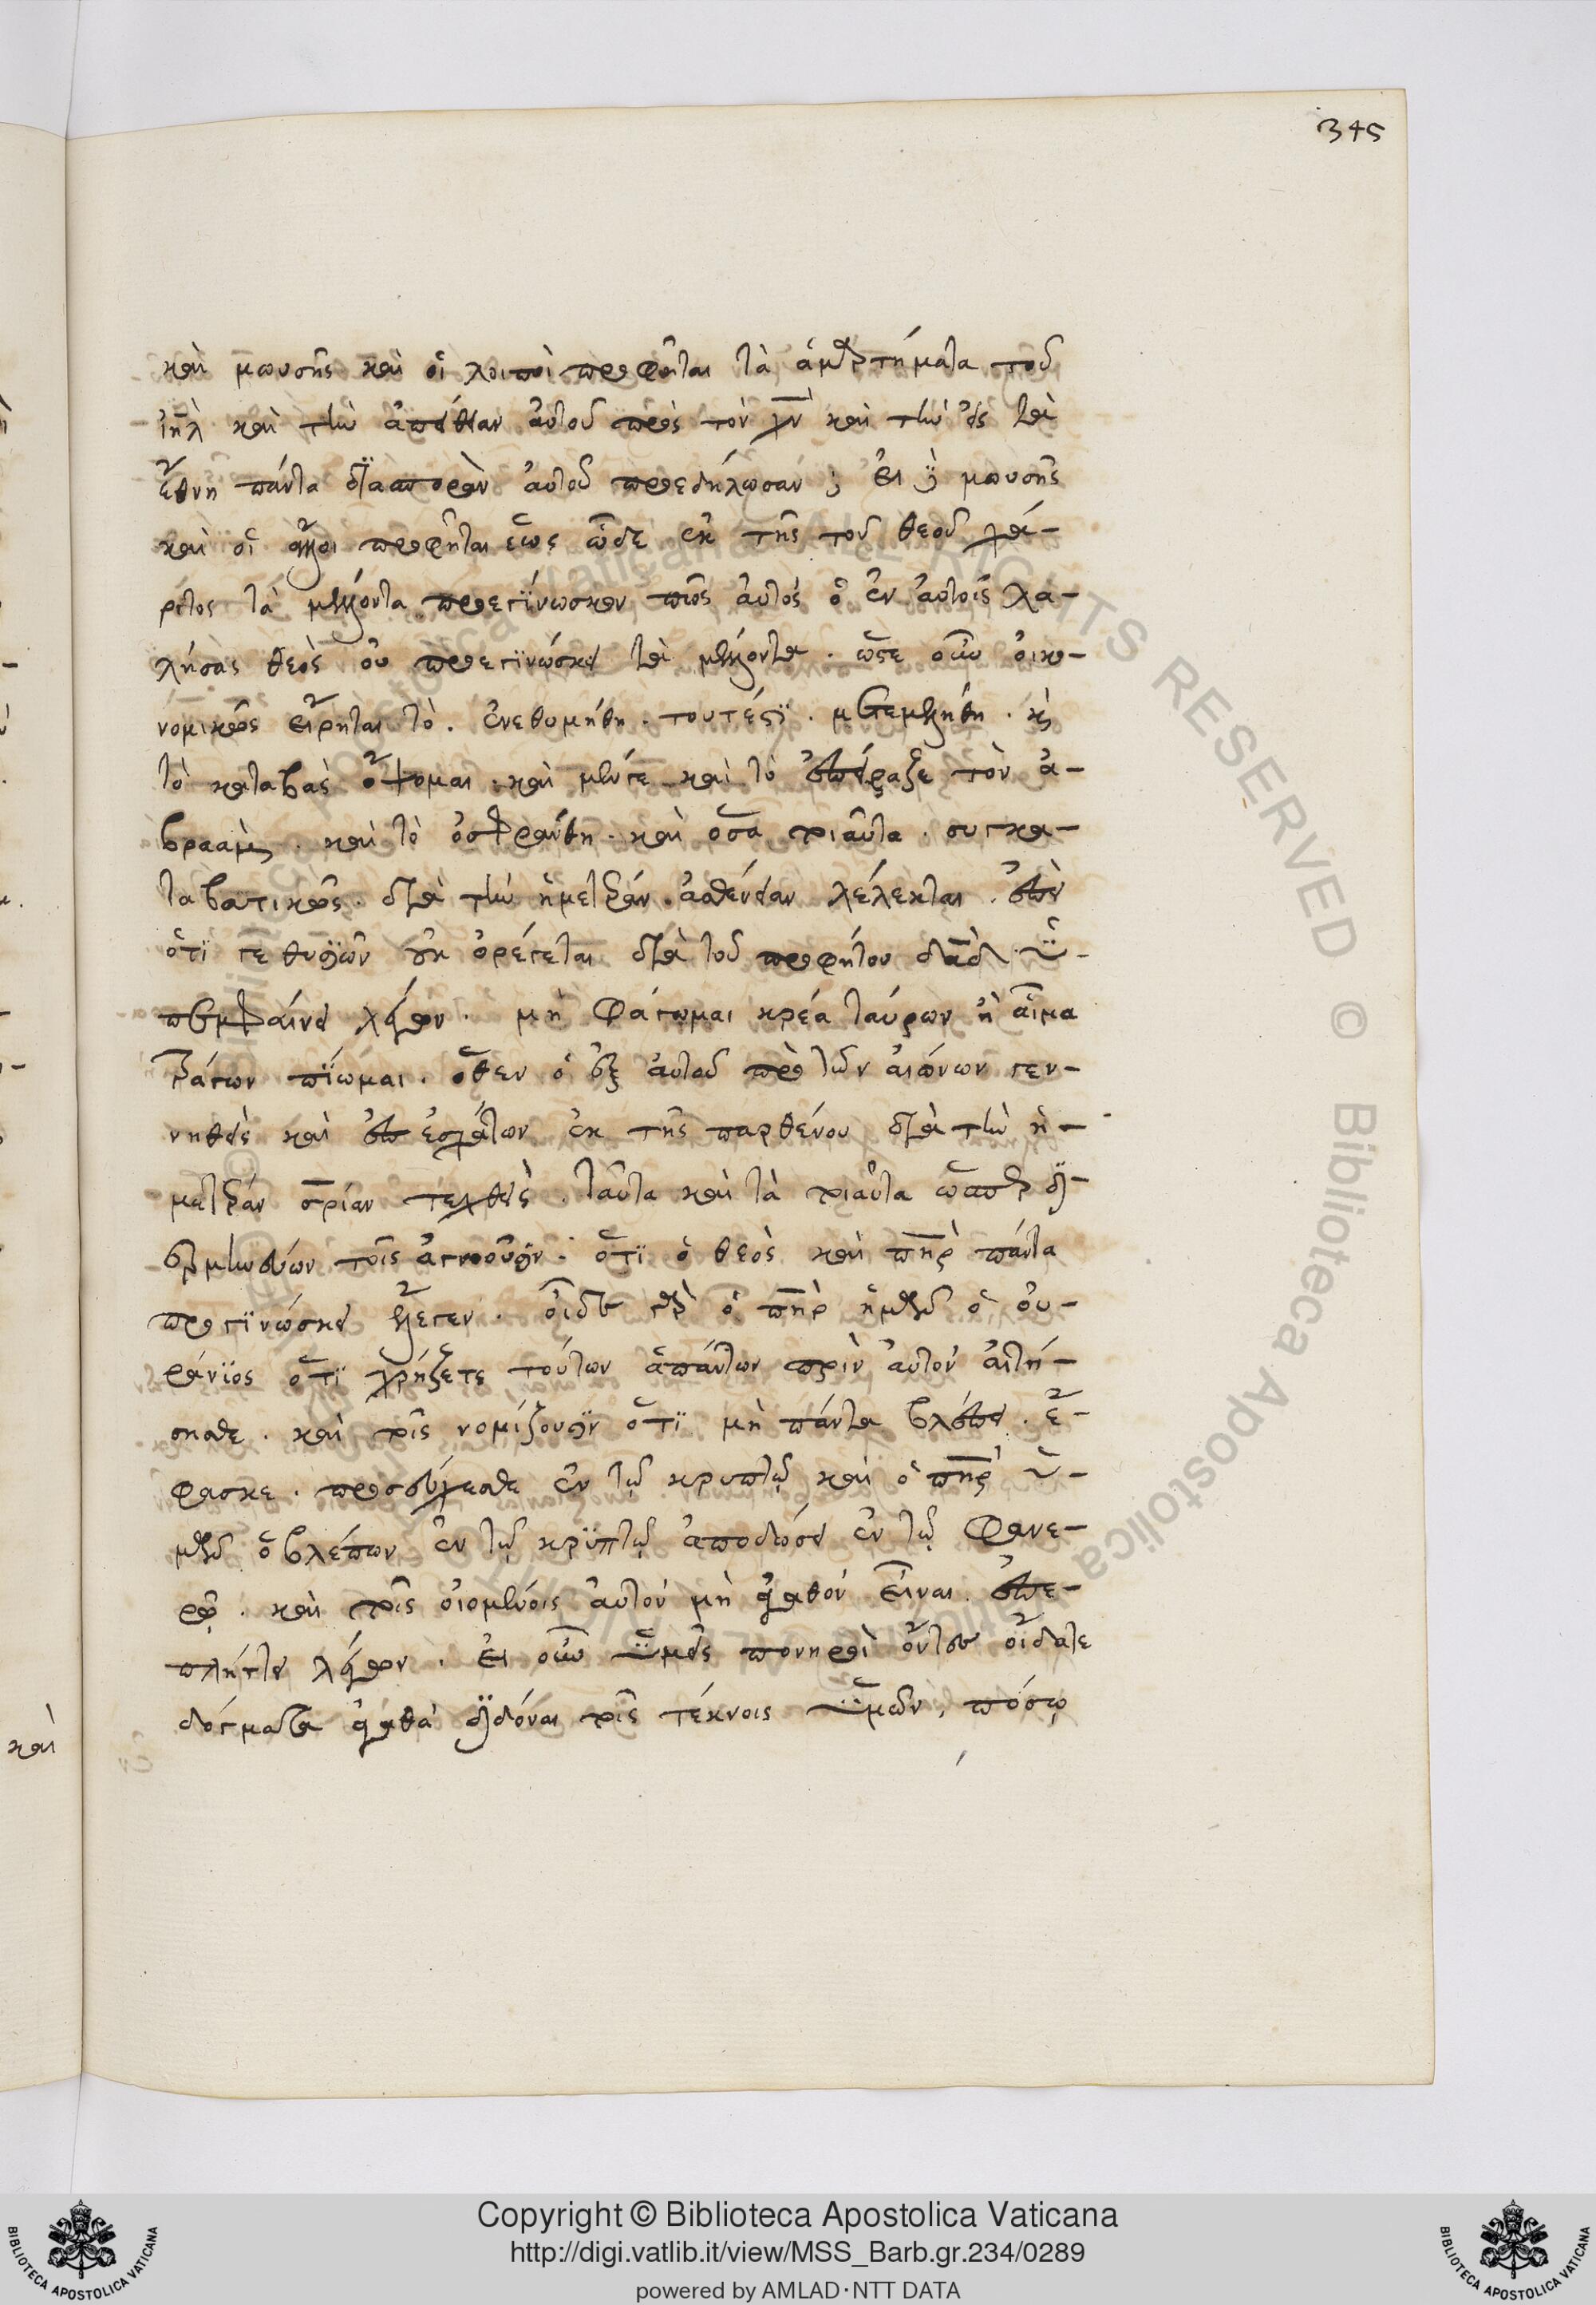 345
καὶ μωυσῆς καὶ οἱ λοιποὶ προφῆται τὰ ἁμαρτήματα τοῦ
ιηλ καὶ τὴν ἀπείθειαν αὐτοῦ πρὸς τὸν χν καὶ τὴν εἰς τὰ
ἔθνη πάντα διασπορὰν αὐτοῦ προεδήλωσαν; εἰ δὲ μωυσῆς
καὶ οἱ ἄλλοι προφῆται ἕως ὧδε ἐκ τῆς τοῦ θεοῦ χά-
ριτος τὰ μέλλοντα προεγίνωσκον πῶς αὐτὸς ὁ ἐν αὐτοῖς λα-
λήσας θεὸς οὐ προεγινώσκει τὰ μέλλοντα. ὥστε οὖν οἰκο-
νομικῶς εἴρηται τὸ. ἐνεθυμήθη. τουτέστι. μετεμελήθη. κ
τὸ καταβὰς ὄψομαι. καὶ τὸ ἐπείραζε τὸν ἀ-
βραάμ. καὶ τὸ ὀσφράνθη. καὶ ὅσα τοιαῦτα. συγκα-
ταβατικῶς. διὰ τὴν ἡμετέραν ἀσθένειαν λέλεκται. ἐπεὶ
ὅτι γε θυσιῶν οὐκ ὀρέγεται διὰ τοῦ προφήτου δαδ ὑ-
περμφαίνει λέγων. μὴ φάγωμαι κρέα ταύρων ἢ αἷμα
τράγων πίωμαι. ὅθεν ὁ ἐξ αὐτοῦ πρὸ τῶν αἰώνων γεν-
νηθεὶς καὶ ἐπ ἐσχάτων ἐκ τῆς παρθένου διὰ τὴν ἡ-
μετέραν σριαν τεχθεὶς. ταῦτα καὶ τὰ τοιαῦτα ὥσπερ δι-
ερμηνεύων τοῖς ἀγνοοῦσιν. ὅτι ὁ θεὸς καὶ πηρ πάντα
προγινώσκει ἔλεγεν. οἶδε γὰρ ὁ πηρ ἡμῶν ὁ οὐ-
ράνιος ὅτι χρήζετε τούτων ἁπάντων πρὶν αὐτὸν αἰτή-
σησθε. καὶ τοῖς νομίζουσιν ὅτι μὴ πάντα βλέπει. ἔ-
φασκε. προσεύχεσθε ἐν τῷ κρυπτῷ καὶ ὁ πηρ ὑ-
μῶν ὁ βλέπων ἐν τῷ κρυπτῷ ἀποδώσει ἐν τῷ φανε-
ρῷ. καὶ τοῖς οἰομένοις αὐτὸν μὴ ἀγαθὸν εἶναι. ἐπε-
πλήττει λέγων. εἰ οὖν ὑμεῖς πονηροὶ ὄντες οἴδατε
δόγματα ἀγαθὰ διδόναι τοῖς τέκνοις ὑμῶν, πόσῳ
καὶ
Copyright © Biblioteca Apostolica Vaticana
http://digi.vatlib.it/view/MSS_Barb.gr.234/0289
powered by AMLAD·NTT DATA